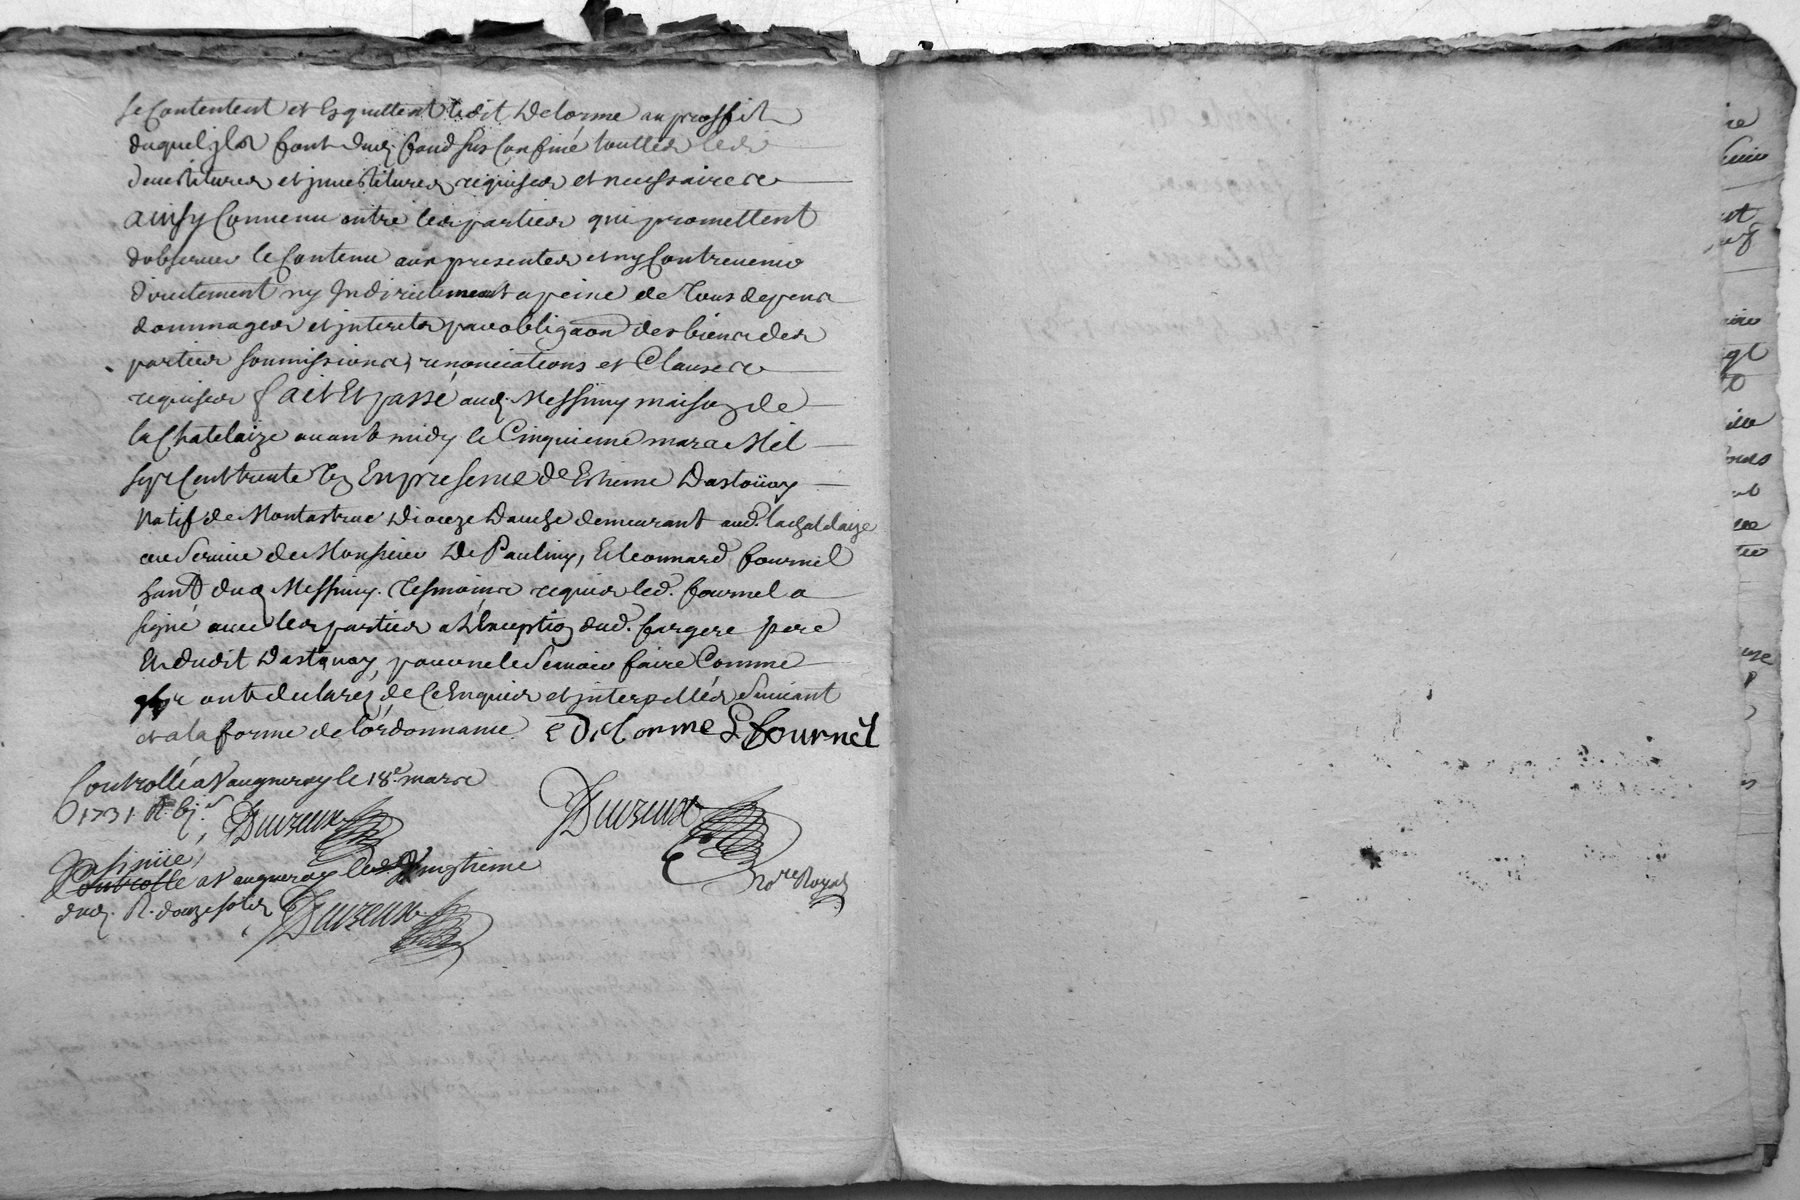 se Contentent et En quittent ledit Delorme au proffit
duquel jls font dud. fond sus Confiné touttes les
devestitures et jnvestitures requises et necessaires
ainsy Convenu entre les parties qui promettent
d'observer le Contenu aux presentes et ny Contrevenir
directement ny Indirectement a peine de Tous depens
dommages et jnterets par obligaõn des biens des
parties soumissions, renonciations et Clauses
requises fait Et passé aud. Messimy maison de
la Chatelaize avant midy le Cinquieme mars Mil
sept Cent trente En presence de Estienne
Natif de Montastruc Dioceze Dauch demeurant aud.
au Service de Monsieur De Pauliny, Et leonnard fournel
dud Messimy. Tesmoins requis led. fournel a
signé avec les parties a L'Exception dud. fargere pere
Et dudit pour ne le Scavoir faire Comme
ont declarés de Ce Enquis et jnterpellés Suivant
et a la forme de l'ordonnance. Delorme L fournel
Controllé a Vaugneray le 18e mars
1731 R.
Duvreux
Duvreux
No.re Royal
jnsinué
Controllé a Vaugneray le vingtieme
dud. R. douze sols
Duvreux